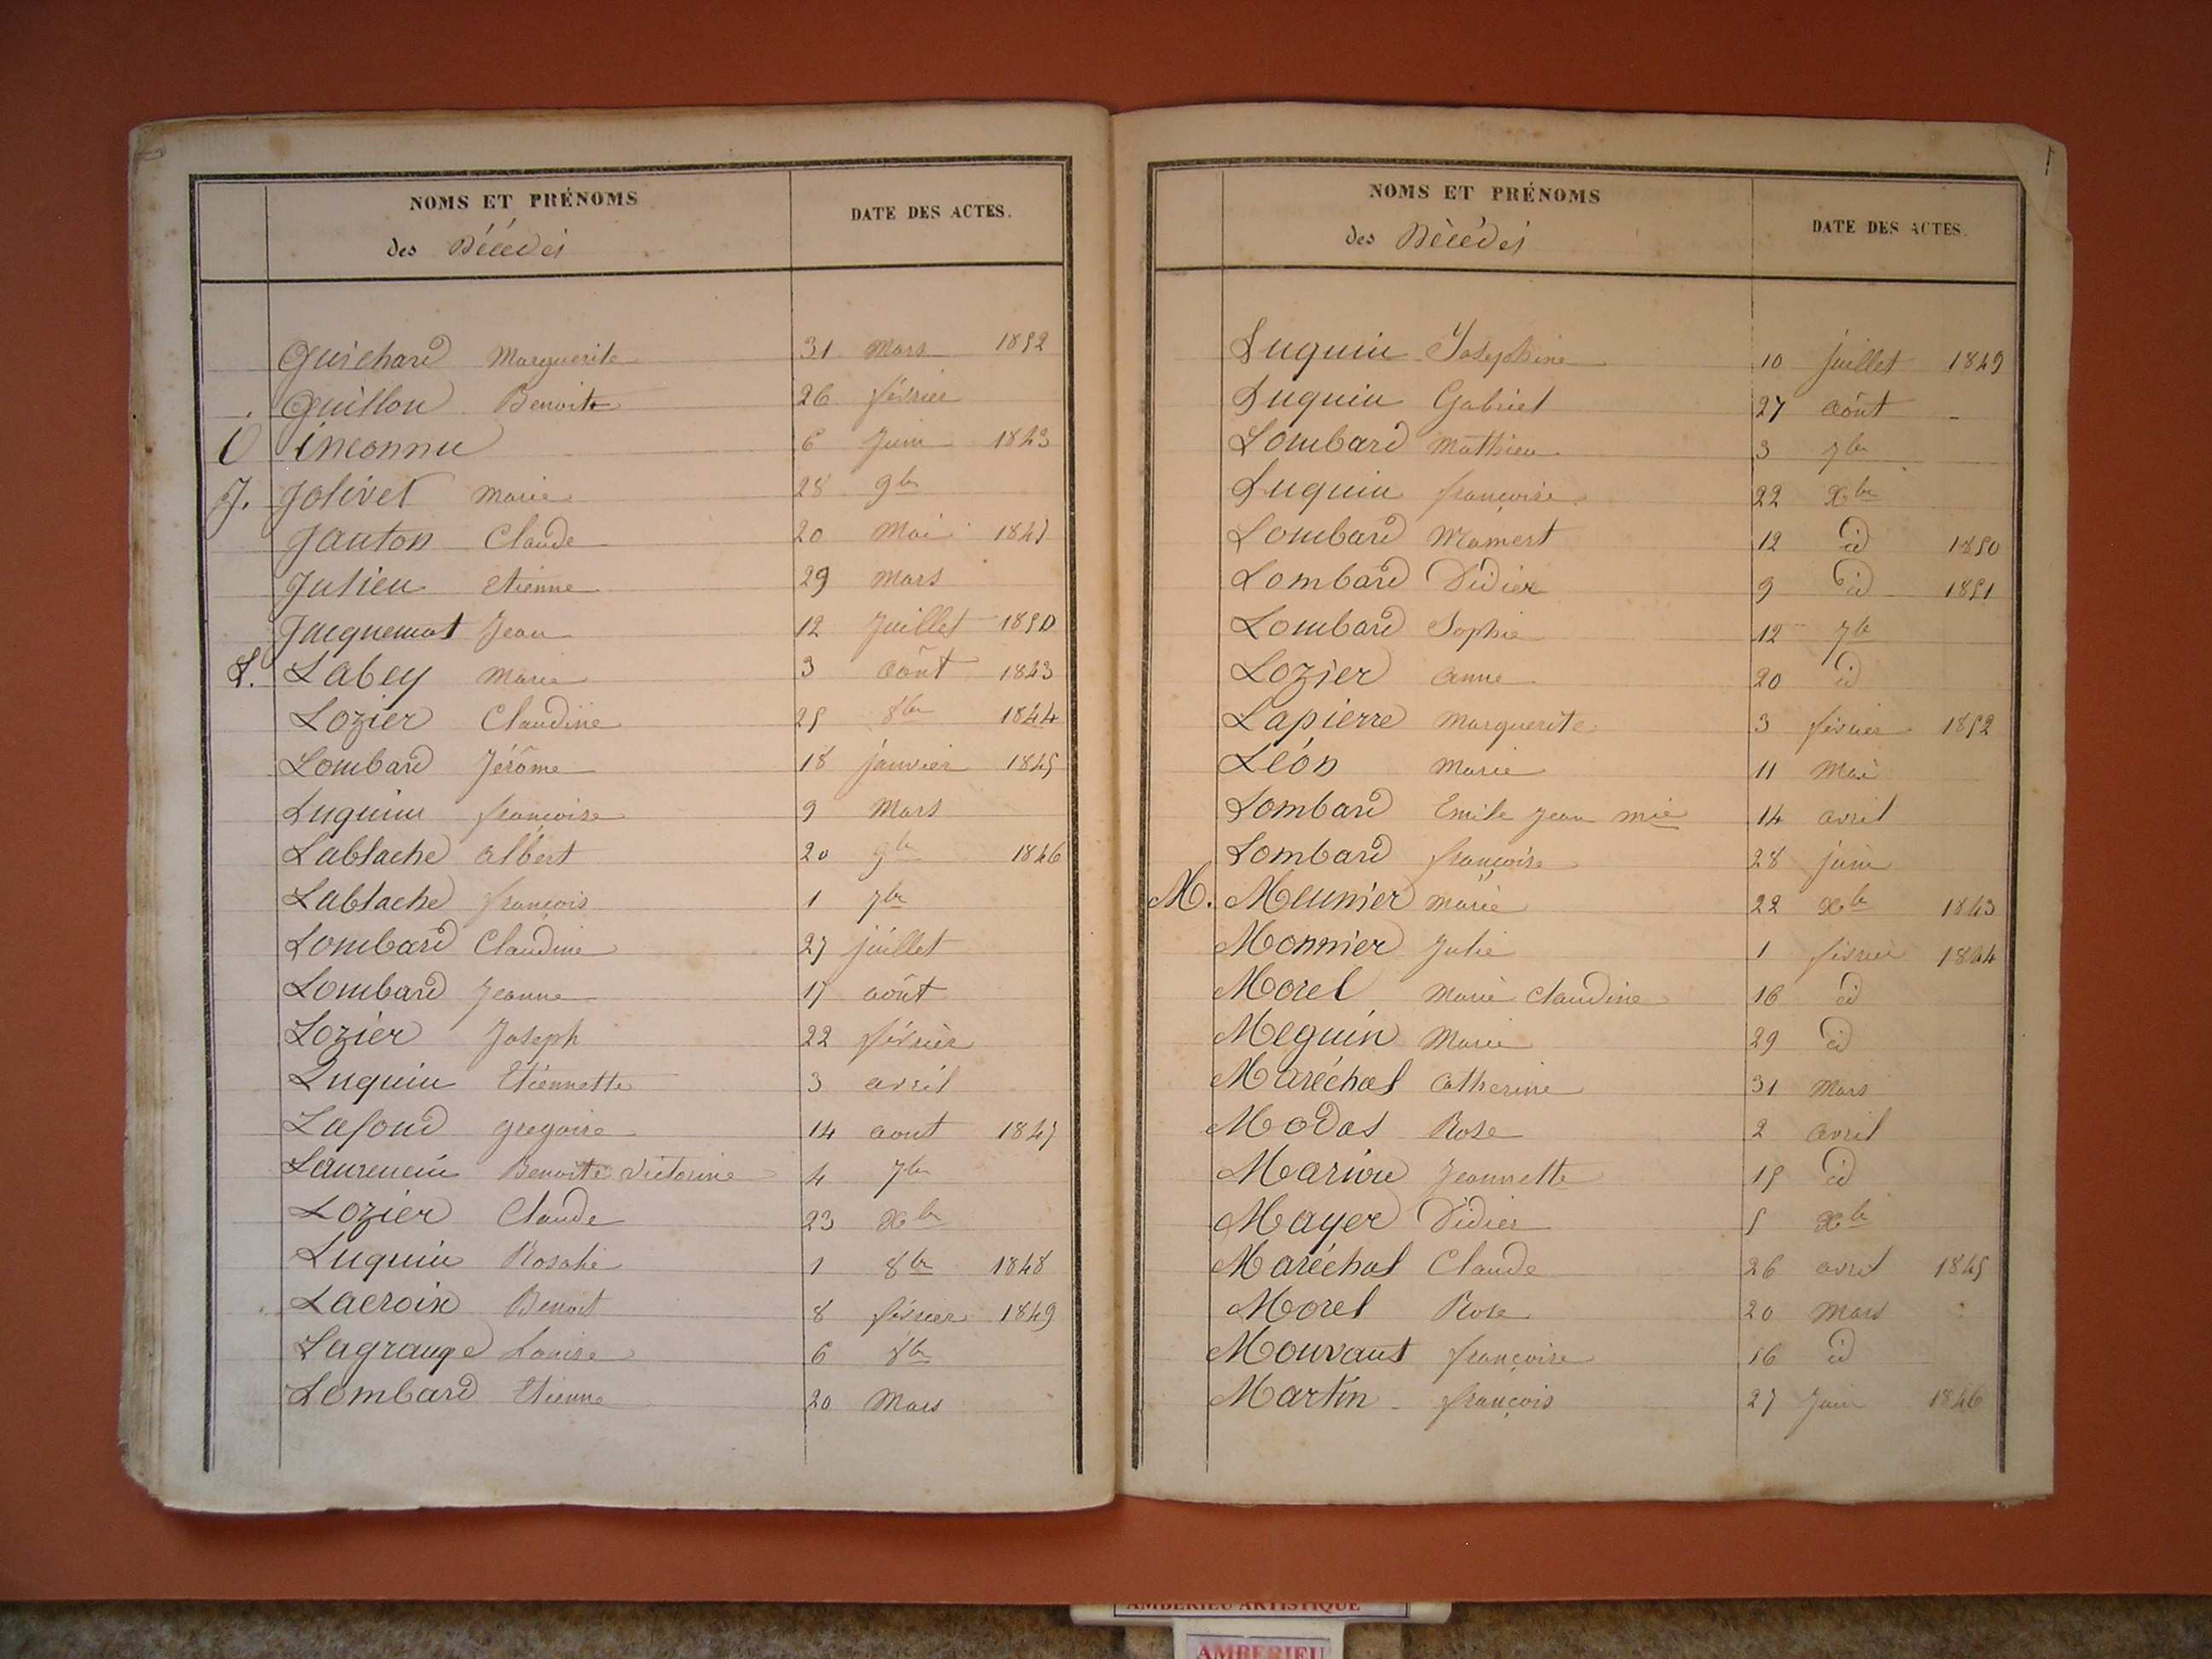 NOMS ET PRÉNOMS
des Décédés
DATE DES ACTES.
Guichard Marguerite 31 Mars 1852
Guillon Benoit 26 février
inconnu 6 Juin 1843
J. Jolivet Marie 28 9bre
Janton Claude 20 Mai 1847
Julien Etienne 29 Mars
Jacquemot Jean 12 Juillet 1850
L. Labey Marie 3 août 1843
Lozier Claudine 25 8bre 1844
Lombard Jérôme 18 janvier 1845
Luquin françoise 9 Mars
Lablache Albert 20 9bre 1846
Lablache françois 1 7bre
Lombard Claudine 27 juillet
Lombard Jeanne 17 août
Lozier Joseph 22 février
Luquin Etiennette 3 avril
Lafond gregoire 14 aout 1847
Laurencin Benoite Victorine 4 7bre
Lozier Claude 23 Xbre
Luquin Rosalie 1 8bre 1848
Lacroix Benoit 8 février 1849
Lagrange Louise 6 8bre
Lombard Etienne 20 Mars
NOMS ET PRÉNOMS
des Décédés
DATE DES ACTES.
Luquin Joséphine 10 juillet 1849
Luquin Gabriel 27 août
Lombard Mathieu 3 7bre
Luquin françoise 22 Xbre
Lombard Mamert 12 id 1850
Lombard Didier 9 id 1851
Lombard Sophie 12 7bre
Lozier Anne 20 id
Lapierre Marguerite 3 février 1852
Léon Marie 11 Mai
Lombard Emile Jean Mie 14 avril
Lombard françoise 28 juin
M. Meunier Marie 22 Xbre 1843
Monnier Julie 1 février 1844
Morel Marie Claudine 16 id
Meguin Marie 29 id
Maréchal Catherine 31 Mars
Modas Rose 2 avril
Marion Jeannette 15 id
Mayer Didier 5 Xbre
Maréchal Claude 26 avril 1845
Morel Rose 20 Mars
Mouvant françoise 16 id
Martin françois 27 Juin 1846
AMBERIEU ARTISTIQUE
AMBERIEU